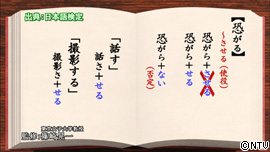 出典:日本語検定
【恐がる】
～させる(使役)
恐がら＋させる
恐がら＋せる
恐がら＋ない
(否定)
「話す」
話さ＋せる
「撮影する」
撮影さ＋せる
©NTV